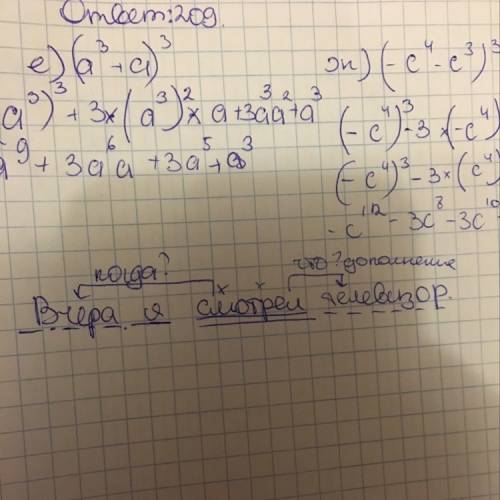 Ответ: 209.
е) (a³ + a)³
a³)³ + 3×(a³)²× a + 3a³a² + a³
a⁹ + 3a⁶a + 3a⁵ + a³
ж) (- c⁴ - c³)³
(- c⁴)³ - 3 × (- c⁴)
(- c⁴)³ - 3 × (c⁴)
- c¹² - 3c⁸ - 3c¹⁰
когда? что? дополнение
Вчера я смотрел телевизор.